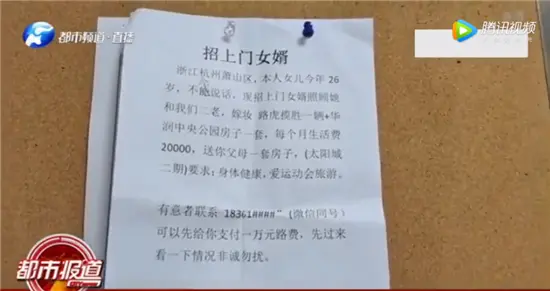 都市频道·直播
腾讯视频
招上门女婿
浙江杭州萧山区,本人女儿今年26
岁,不能说话,现招上门女婿照顾她
和我们二老,嫁妆 路虎揽胜一辆+华
润中央公园房子一套,每个月生活费
20000,送你父母一套房子,(太阳城
二期)要求:身体健康,爱运动会旅游。
有意者联系 18361####"(微信同号)
可以先给你支付一万元路费,先过来
看一下情况非诚勿扰。
都市报道